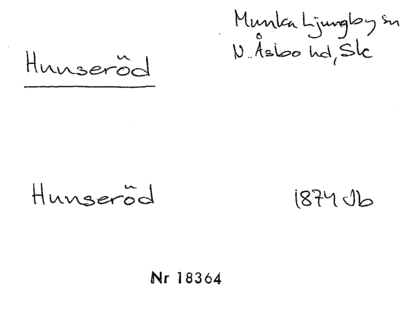 Munka Ljungby sn
Hunseröd
N. Åsbo hd, Sk
Hunseröd
1874 Jb
Nr 18364